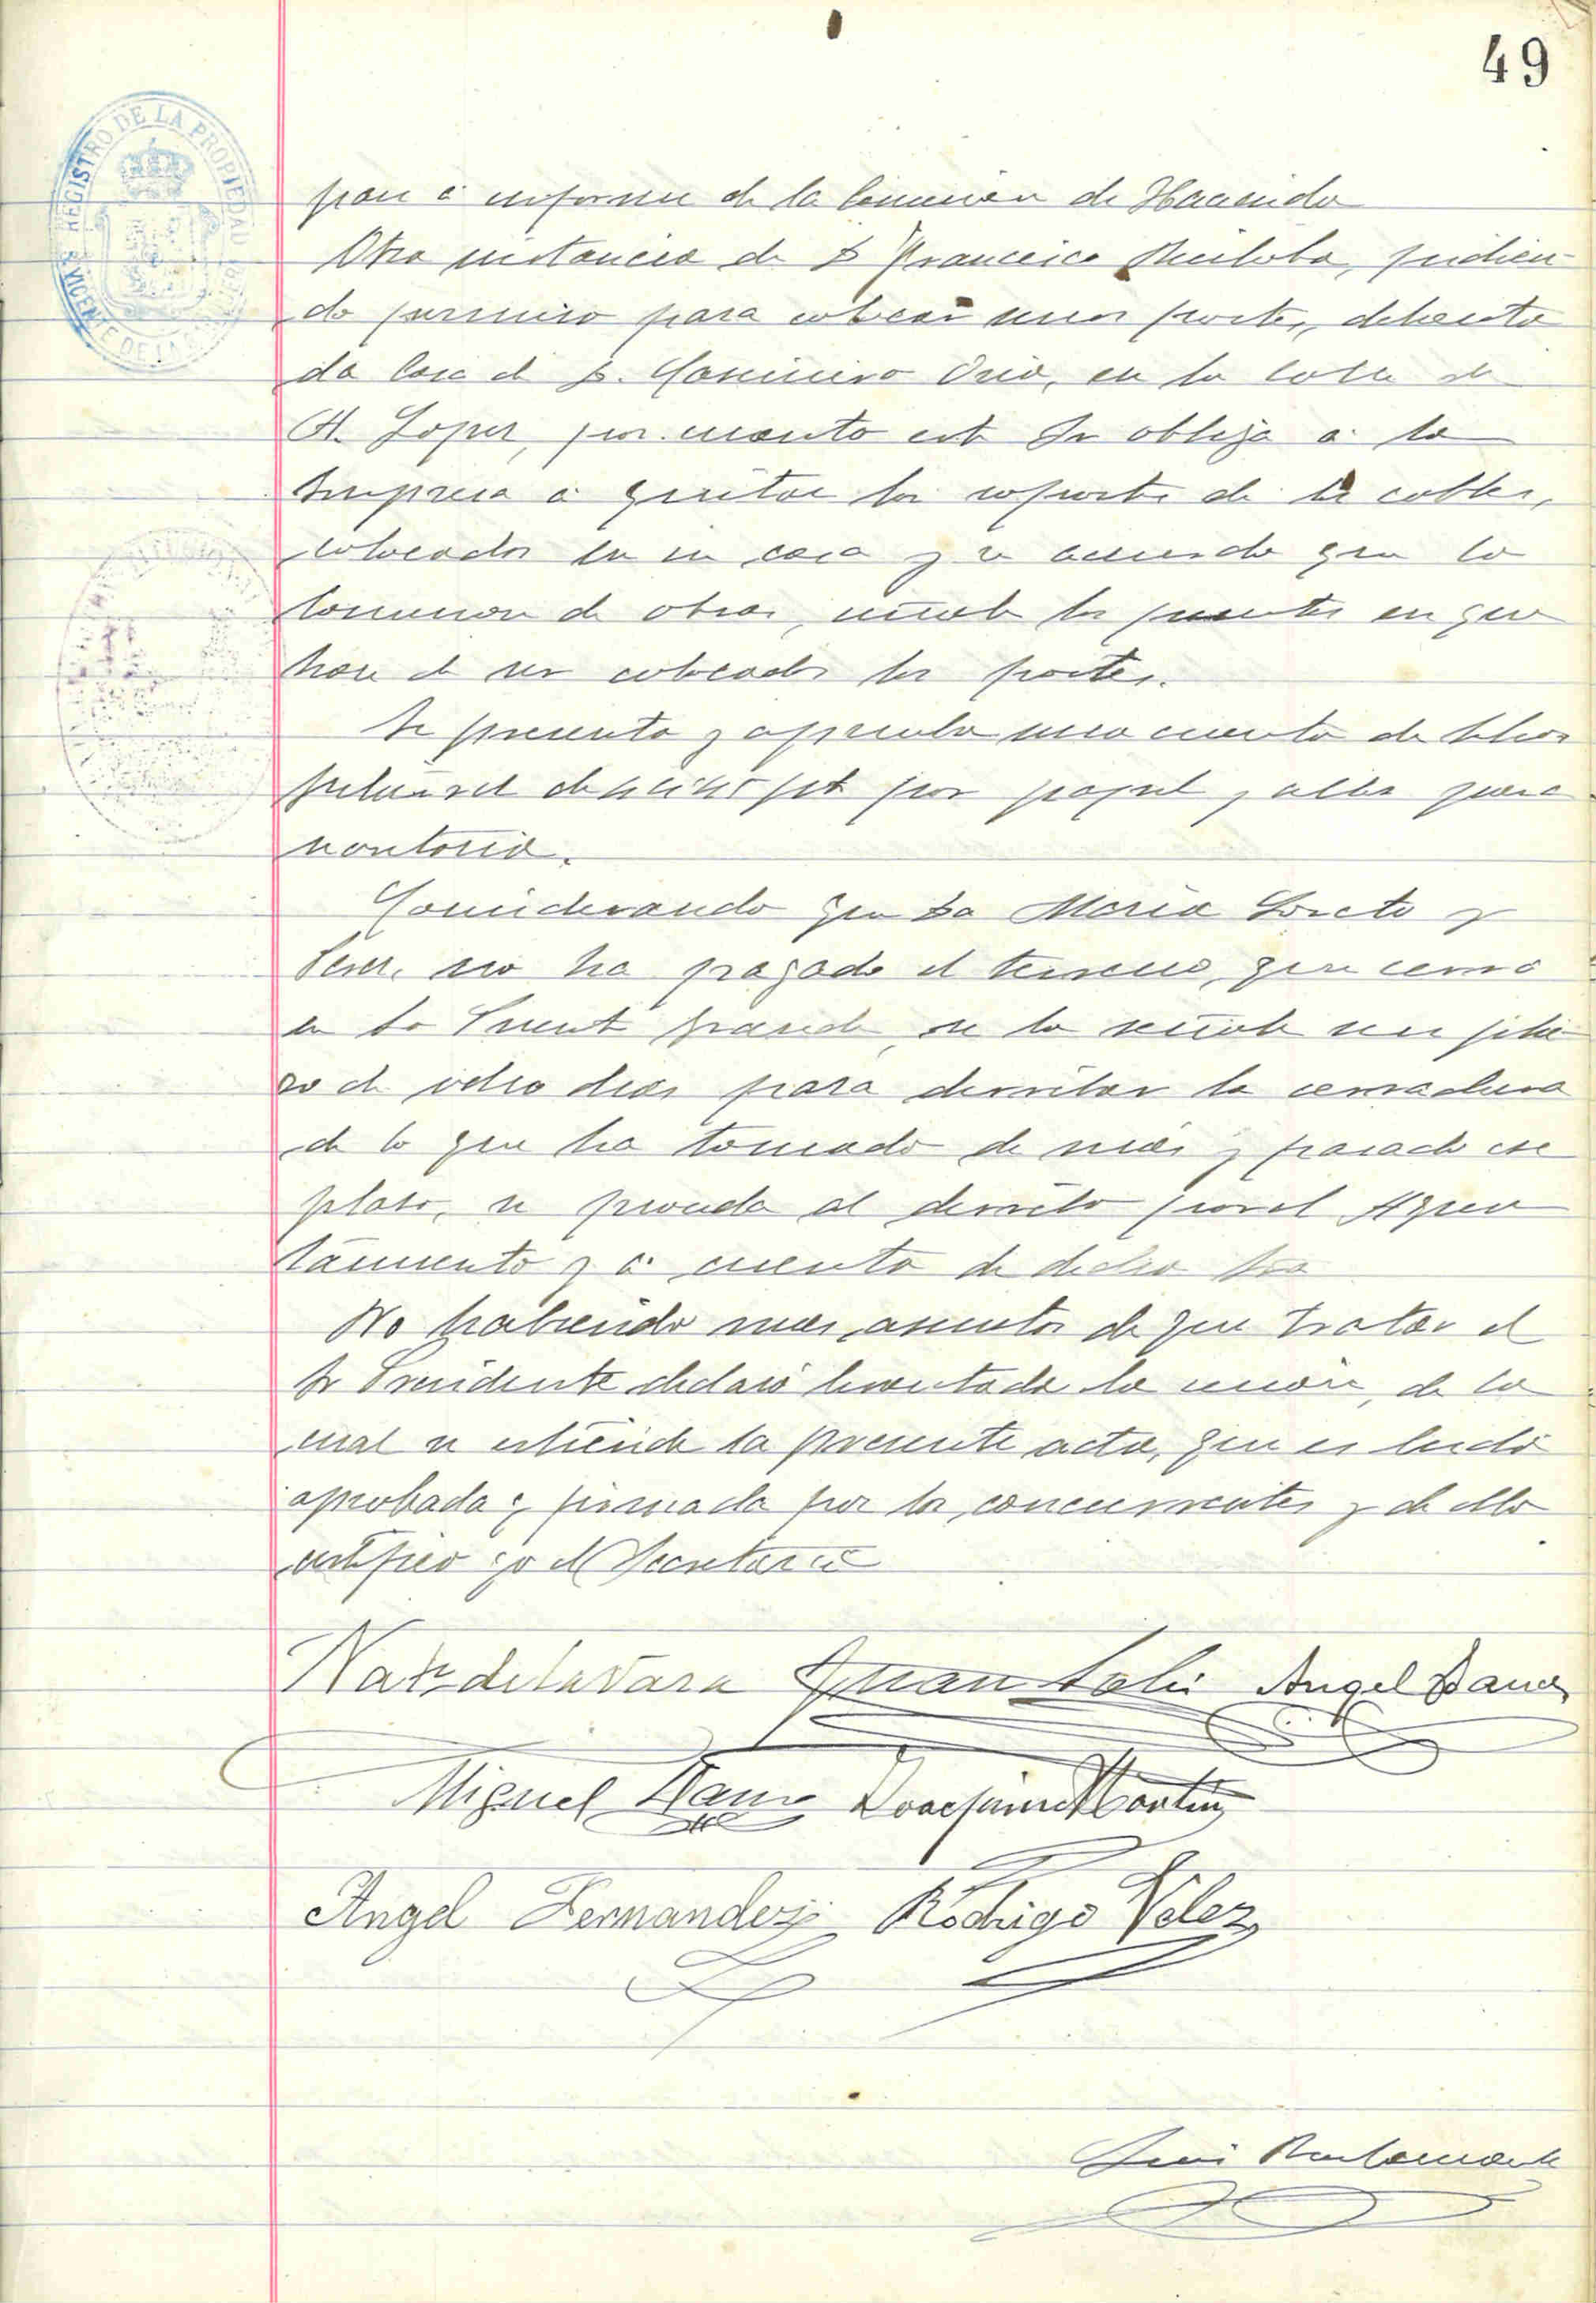 49
REGISTRO DE LA PROPIEDAD
S. VICENTE DE LA
pase á informe de la Comision de Hacienda
Otra instancia de D Francisco pidien-
do permiso para colocar unos postes, delante
da Casa de D. Casimiro en la calle de
A. Lopez, por cuanto este Sr obliga a la
Empresa a quitar los soportes de los cables,
colocados en su casa y se acuerda que la
Comision de obras, señale los puntos en que
han de ser colocados los postes.
Se presenta y aprueba una cuenta de
de pts por papel y para
Considerando que Da Maria Loreto y
no ha pagado el terreno, que cerró
en la Fuente grande, se la señale un pla
zo de ocho dias para derribar la cerradura
de lo que ha tomado de más y pasado ese
plazo, se proceda al derribo por el Ayun
tamiento y á cuenta de dicha Sra
No habiendo mas asuntos de que tratar el
Sr Presidente declaró levantada la sesión, de la
cual se estiende la presente acta, que es leida
aprobada y firmada por los concurrentes y de ello
certifico yo el Secretario
de la Vara Juan Angel
Miguel Joaquin Martin
Angel Fernandez Rodrigo Velez
Bustamante